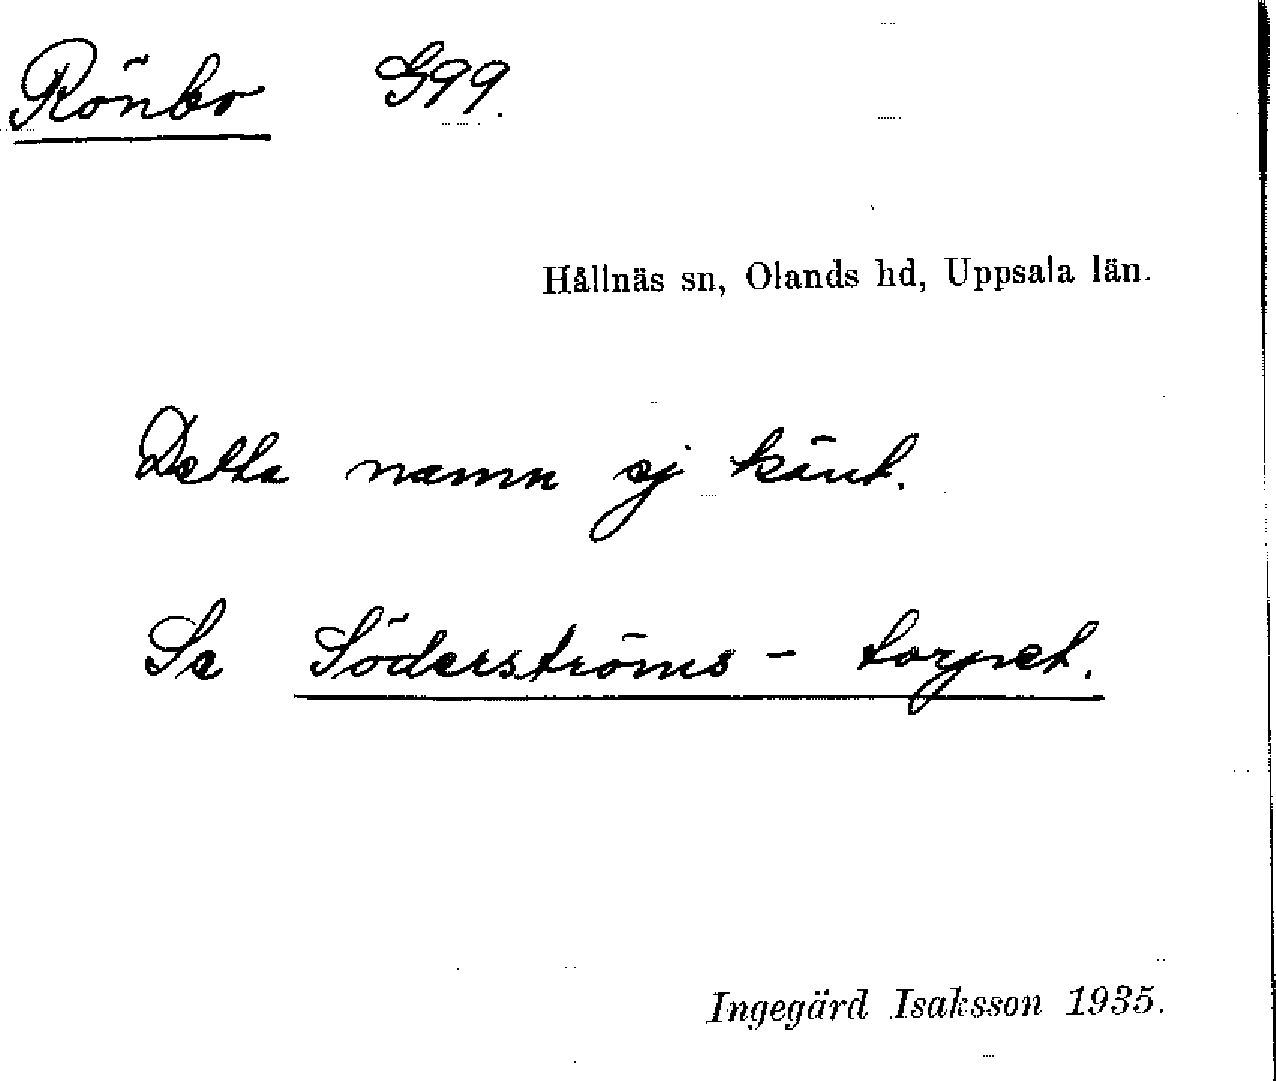 Rönbo G99.
Hållnäs sn, Olands hd, Uppsala län.
Detta namn ej känt.
Se Söderströms - torpet.
Ingegärd Isaksson 1935.